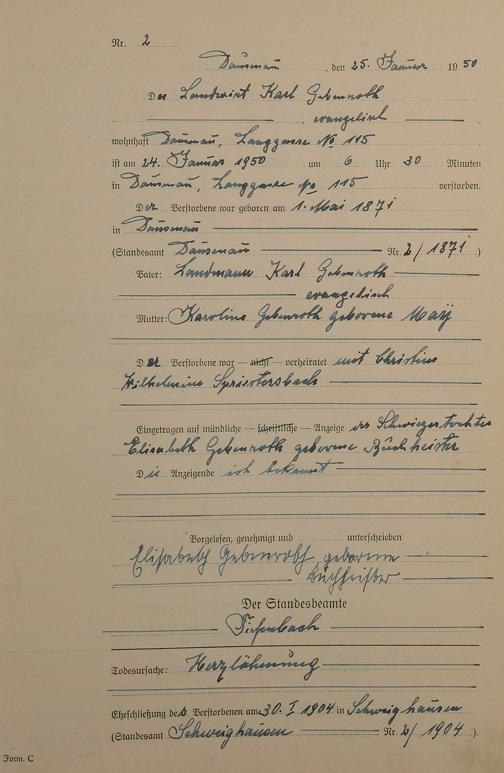 Nr. 2
Dausenau, den 25. Januar 1950
Der Landwirt Karl Gebenroth
evangelisch
wohnhaft Dausenau, Langgasse No 115
ist am 24. Januar 1950 um 6 Uhr 30 Minuten
in Dausenau, Langgasse No 115 verstorben.
Der Verstorbene war geboren am 1. Mai 1871
in Dausenau
(Standesamt Dausenau Nr. 2/1871)
Vater: Landmann Karl Gebenroth
evangelisch
Mutter: Karoline Gebenroth geborene May
Der Verstorbene war — nicht — verheiratet mit Christine
Wilhelmine Spriestersbach
Eingetragen auf mündliche — schriftliche — Anzeige der Schwiegertochter
Elisabeth Gebenroth geborene Buchheister
Die Anzeigende ist bekannt
Vorgelesen, genehmigt und unterschrieben
Elisabeth Gebenroth geborene
Buchheister
Der Standesbeamte
Tiefenbach
Todesursache: Herzlähmung
Eheschließung des Verstorbenen am 30. I 1904 in Schweighausen
(Standesamt Schweighausen Nr. 2/1904).
Form. C